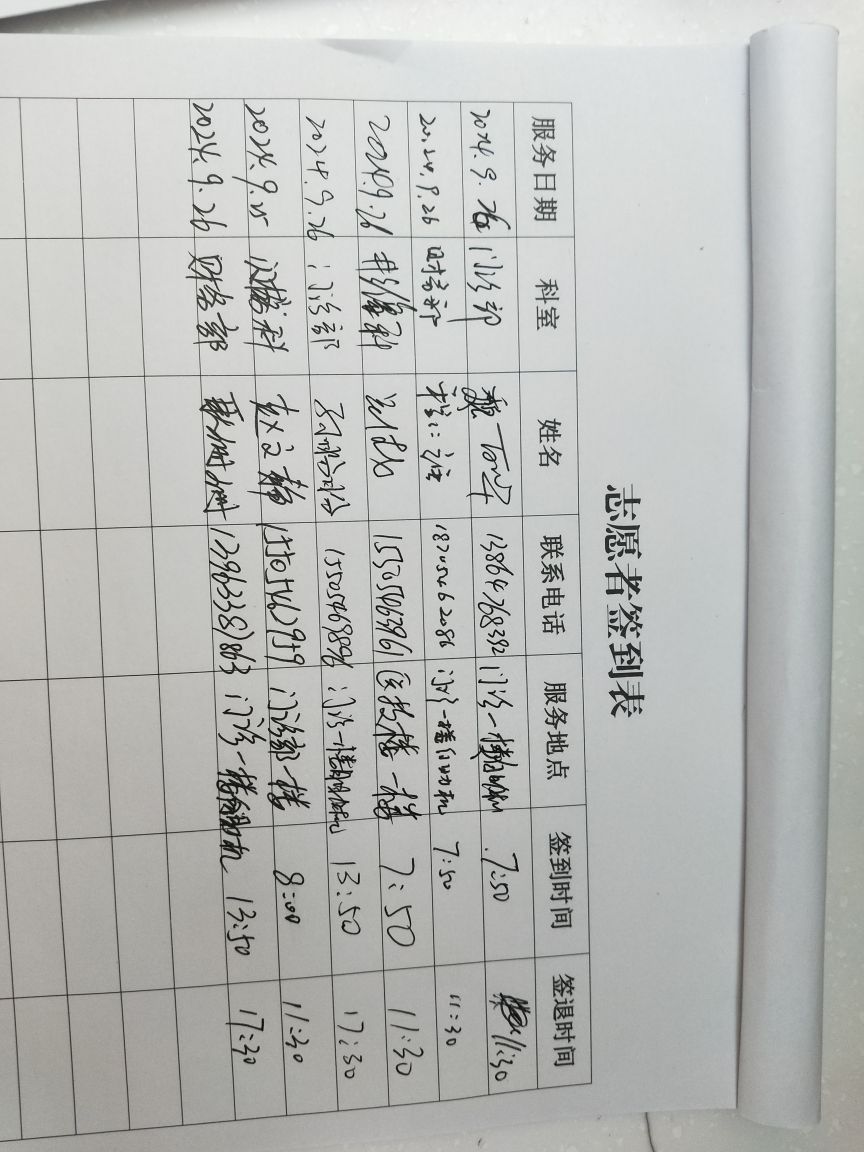 志愿者签到表
服务日期 科室 姓名 联系电话 服务地点 签到时间 签退时间
2024.9.26 门诊部 13864768392 门诊一楼 7:50 11:30
2024.9.26 财务部 18705462086 门诊一楼自助机 7:50 11:30
2024.9.26 15305463961 医技楼一楼 7:50 11:30
2024.9.26 门诊部 15505468896 门诊一楼 13:50 17:30
2024.9.25 赵文静 15505462959 门诊部一楼 8:00 11:30
2024.9.26 财务部 13963387863 门诊一楼 13:50 17:30